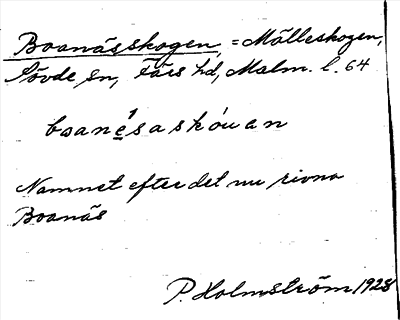 Boanässkogen, = Mölleskogen,
Sövde sn, Färs hd, Malm. l. 64
boanésaskóuan
Namnet efter det nu rivna
Boanäs
P. Holmström 1928